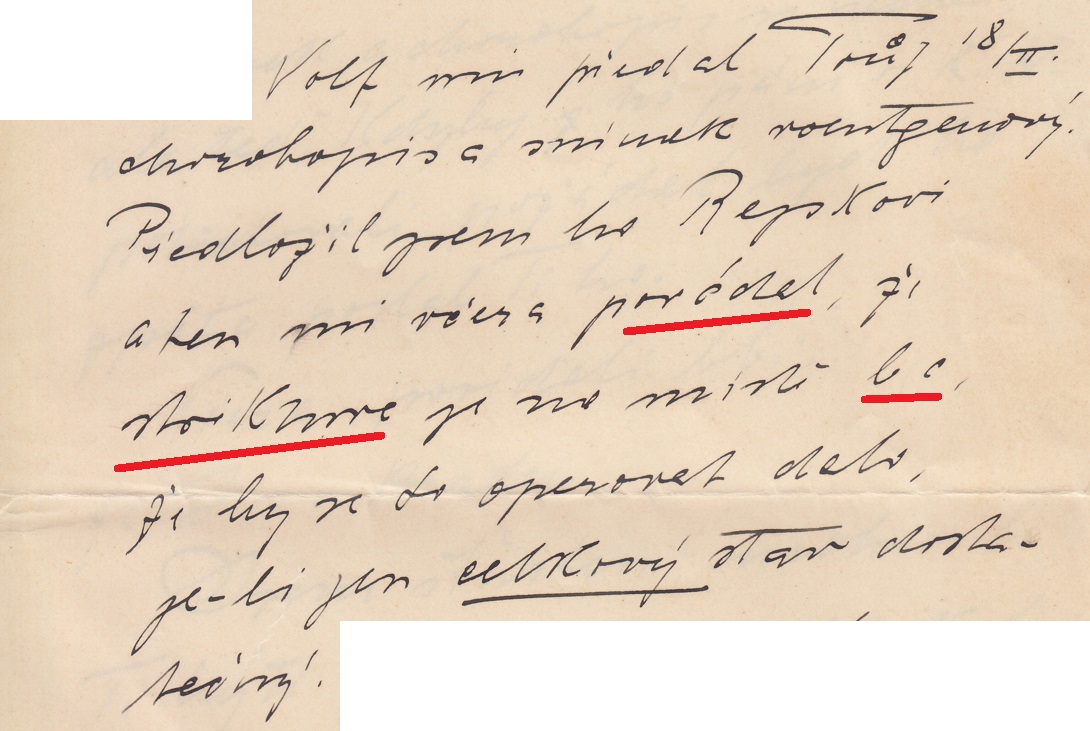 Volf mi předal Tvůj 18/II.
chorobopis a snímek roentgenový.
Předložil jsem ho Repskovi
a ten mi včera  že
striktura je na místě
že by se to operovat dalo,
je-li jen celkový stav dosta-
tečný.